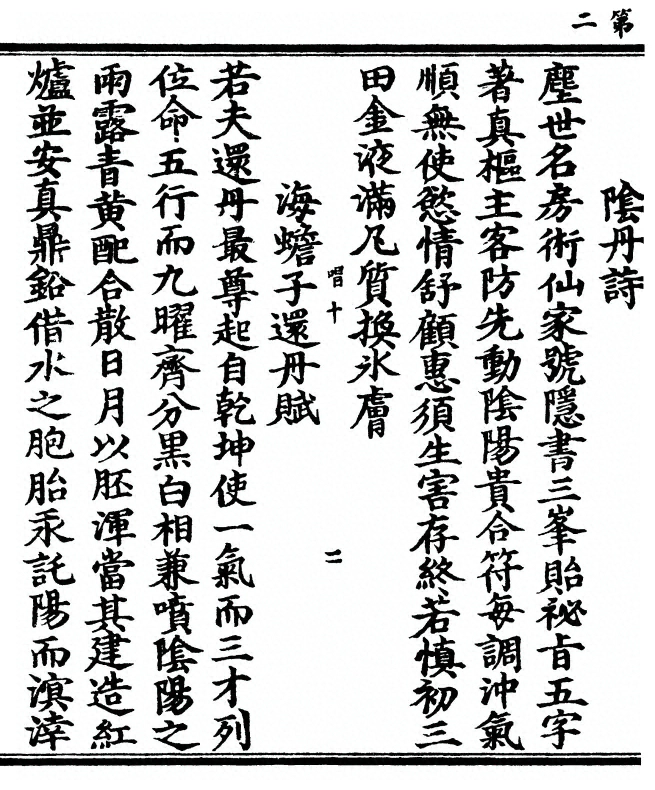 第二
陰丹詩
塵世名房術仙家號隱書三峯貽祕旨五字
著真樞主客防先動陰陽貴合符每調沖氣
順無使慾情舒顧惠須生害存終若慎初三
田金液滿凡質換氷膚
唱十 二
海蟾子還丹賦
若夫還丹最尊起自乾坤使一氣而三才列
位命五行而九曜齊分黑白相兼噴陰陽之
雨露青黄配合散日月以胚渾當其建造紅
爐並安真鼎鉛借水之胞胎汞託陽而溟涬